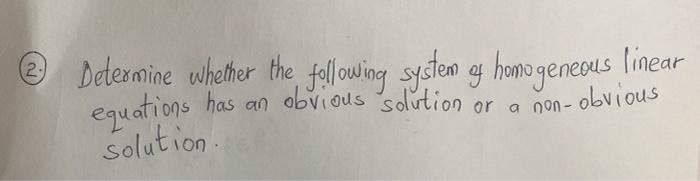 2. Determine whether the following system of homogeneous linear
equations has an obvious solution or a non-obvious
solution.